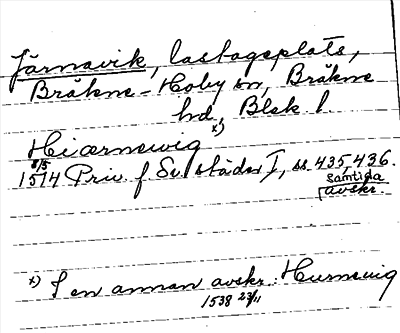 Järnavik, lastageplats,
Bräkne-Hoby sn, Bräkne
hd, Blek. l.
Hiærnewig x)
8/5
1514 Priv. f Sv. städer I, ss. 435, 436.
samtida
avskr.
x) I en annan avskr.: Hurnewig
1538 23/11